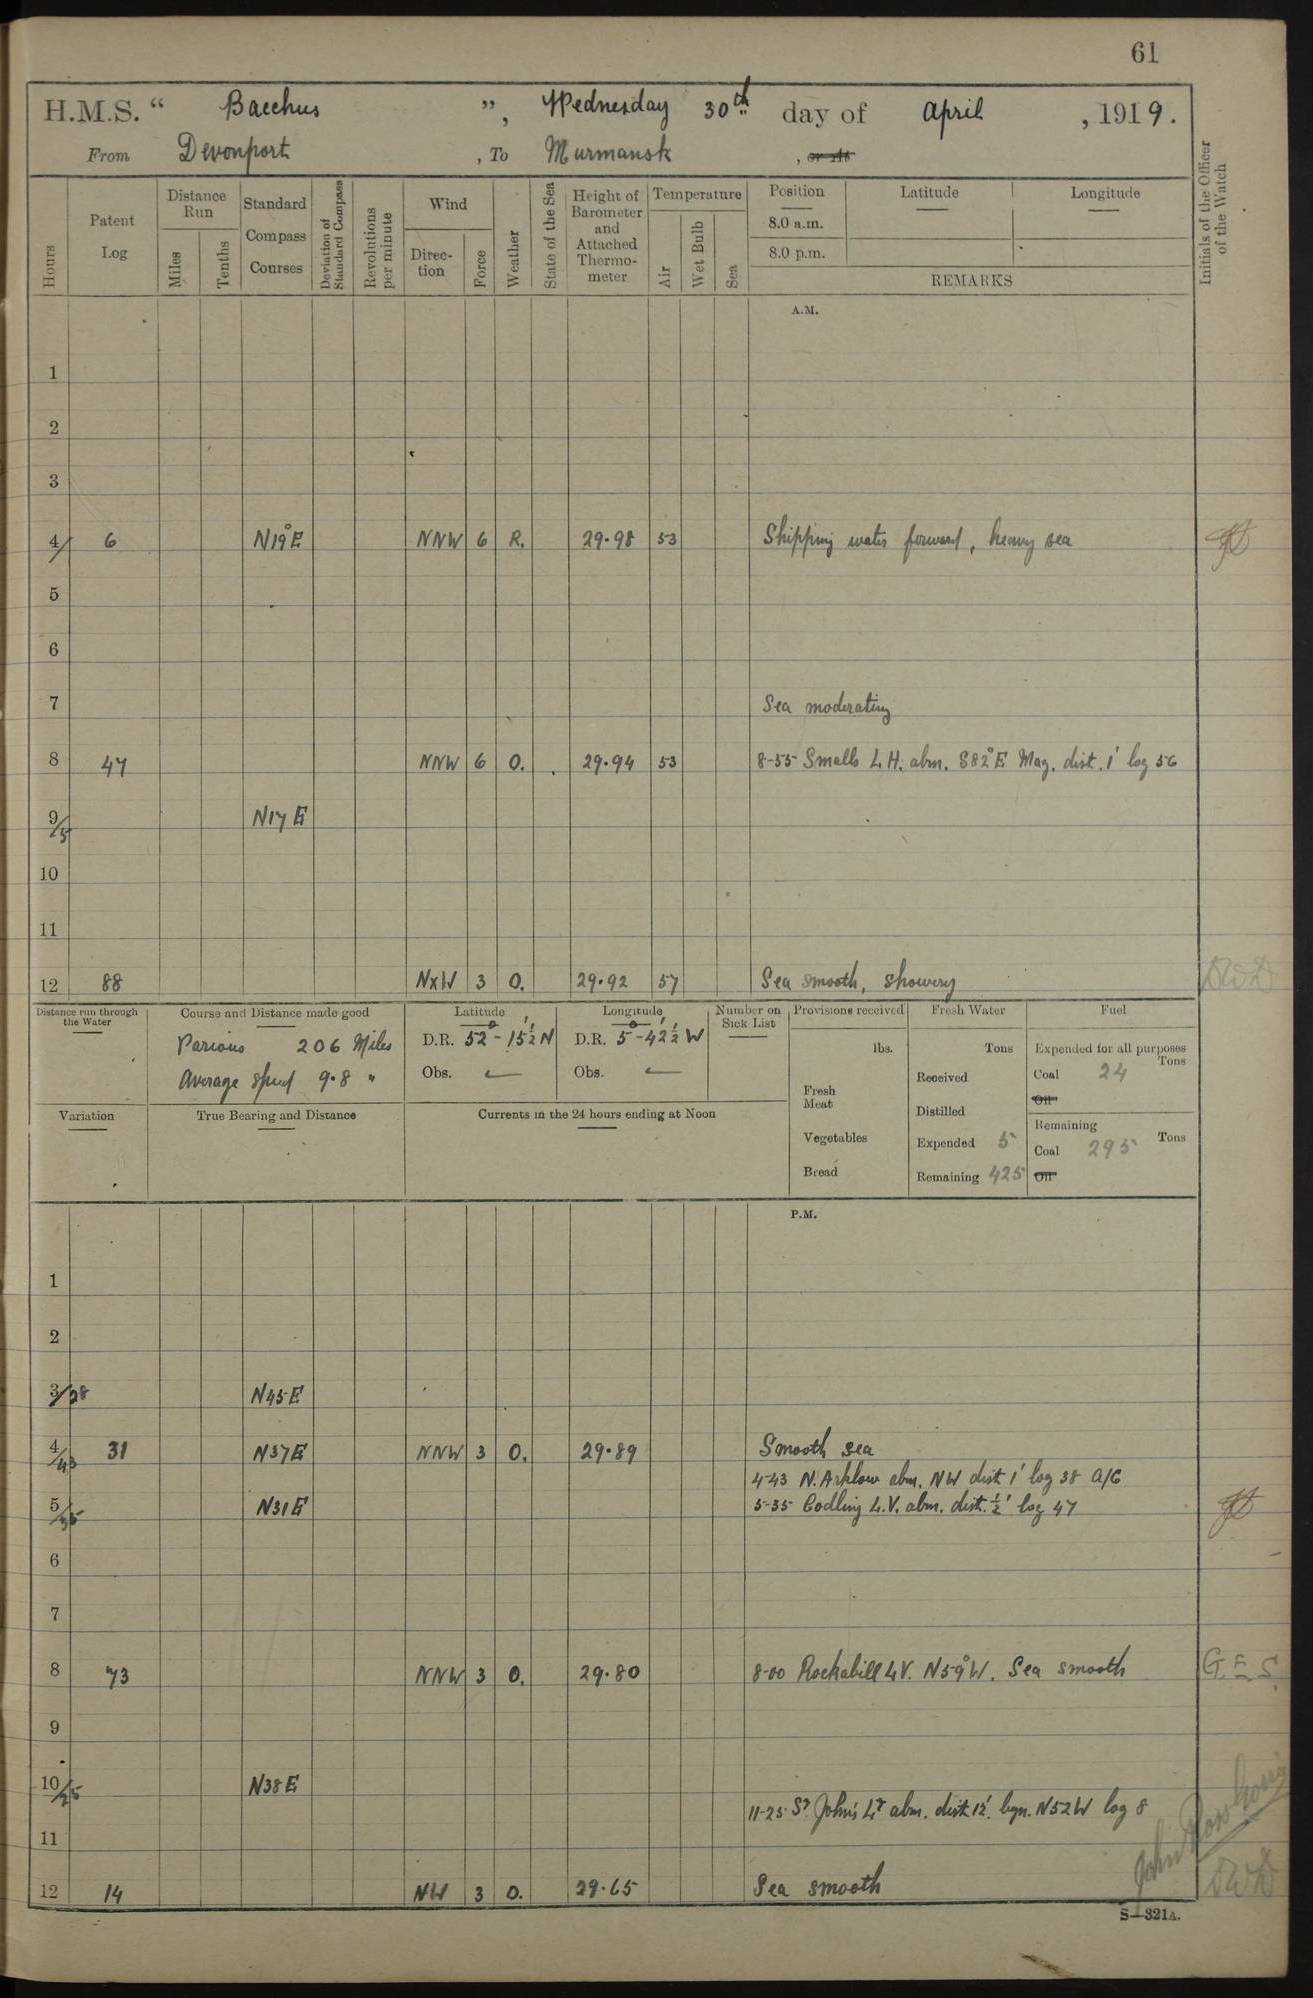 61
H.M.S. “ Bacchus ”, Wednesday 30th day of April , 1919.
From Devonport , To Murmansk , or At
Hours
Patent Log
Distance Run
Miles
Tenths
Standard Compass Courses
Deviation of Standard Compass
Revolutions per minute
Wind
Direction
Force
Weather
State of the Sea
Height of Barometer and Attached Thermometer
Temperature
Air
Wet Bulb
Sea
Position Latitude Longitude
8.0 a.m.
8.0 p.m.
REMARKS
Initials of the Officer of the Watch
A.M.
1
2
3
4/ 6 N19°E NNW 6 R. 29.98 53 Shipping water forward, heavy sea
5
6
7 Sea moderating
8 47 NNW 6 O. 29.94 53 8-55 Smalls L.H. abm. S82°E Mag. dist. 1' log 56
9/5 N17E
10
11
12 88 NxW 3 O. 29.92 57 Sea smooth, showery DWD
Distance run through the Water
Course and Distance made good
Various 206 Miles
Average speed 9.8 "
Latitude
D.R. 52°-15½'N
Obs.
Longitude
D.R. 5°-42½'W
Obs.
Number on Sick List
Provisions received
lbs.
Fresh Meat
Vegetables
Bread
Fresh Water
Tons
Received
Distilled
Expended 5
Remaining 425
Fuel
Expended for all purposes
Tons
Coal 24
Oil
Remaining
Tons
Coal 295
Oil
Variation
True Bearing and Distance
Currents in the 24 hours ending at Noon
P.M.
1
2
3/28 N45E
4/43 31 N37E NNW 3 O. 29.89 Smooth sea
4-43 N. Arklow abm. NW dist 1' log 38 A/C
5/35 N31E 5-35 Codling L.V. abm. dist. ½' log 47
6
7
8 73 NNW 3 O. 29.80 8-00 Rockabill LV. N59°W. Sea smooth G.E.S.
9
10/25 N38E
11-25 St John's Lt abm. dist 12'. bgn. N52W log 8
11
12 14 NW 3 O. 29.65 Sea smooth DWD
S—321A.